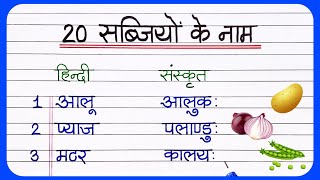 20 सब्जियों के नाम
हिन्दी संस्कृत
1 आलू आलुकः
2 प्याज पलाण्डुः
3 मटर कालयः